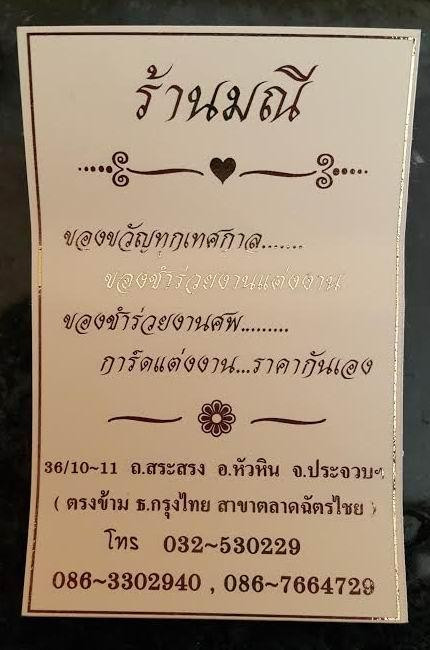 ร้านมณี
ของขวัญทุกเทศกาล.......
ของชำร่วยงานแต่งงาน
ของชำร่วยงานศพ.........
การ์ดแต่งงาน...ราคากันเอง
36/10~11 ถ.สระสรง อ.หัวหิน จ.ประจวบฯ
( ตรงข้าม ธ.กรุงไทย สาขาตลาดฉัตรไชย )
โทร 032~530229
086~3302940 , 086~7664729